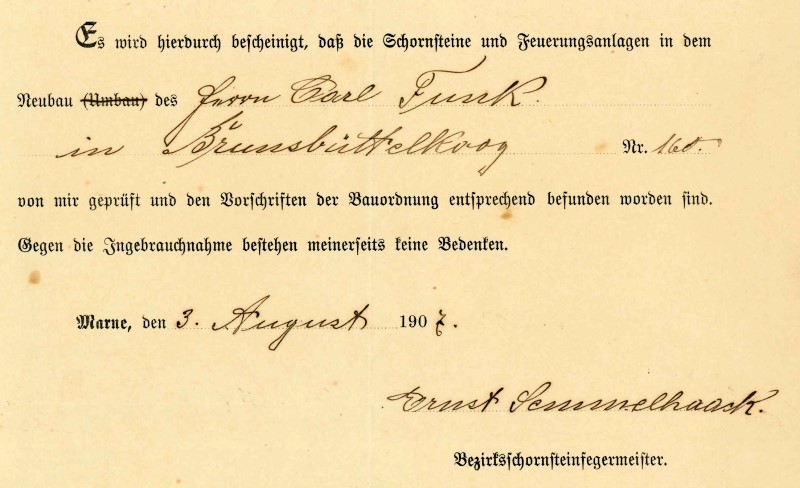 Es wird hierdurch bescheinigt, daß die Schornsteine und Feuerungsanlagen in dem
Neubau (Umbau) des Herrn Carl Funk.
in Brunsbüttelkoog Nr. 160.
von mir geprüft und den Vorschriften der Bauordnung entsprechend befunden worden sind.
Gegen die Ingebrauchnahme bestehen meinerseits keine Bedenken.
Marne, den 3. August 1907.
Ernst Semmelhaack.
Bezirksschornsteinfegermeister.